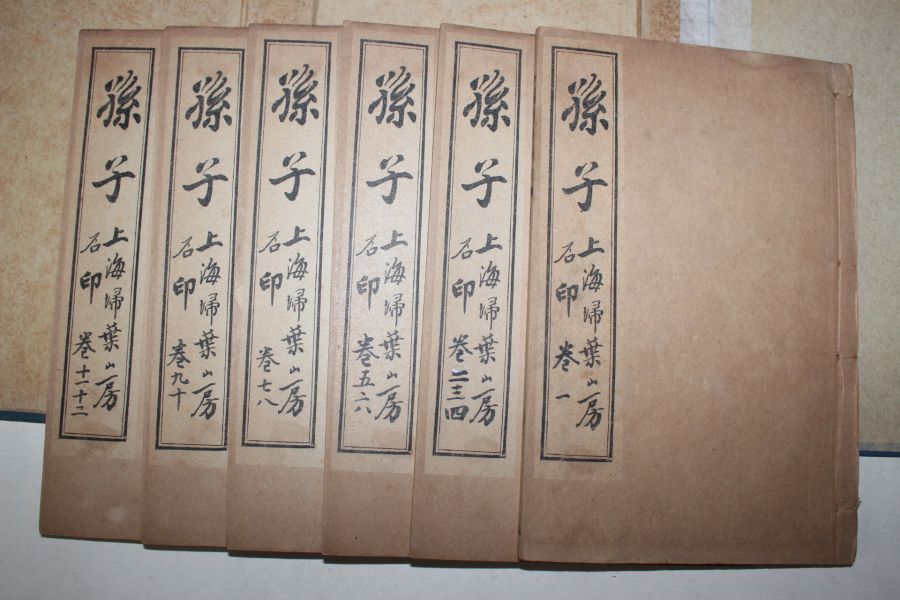 孫子
上海掃葉山房
石印 卷一
孫子
上海掃葉山房
石印 卷二三四
孫子
上海掃葉山房
石印 卷五六
孫子
上海掃葉山房
石印 卷七八
孫子
上海掃葉山房
石印 卷九十
孫子
上海掃葉山房
石印 卷十一十二